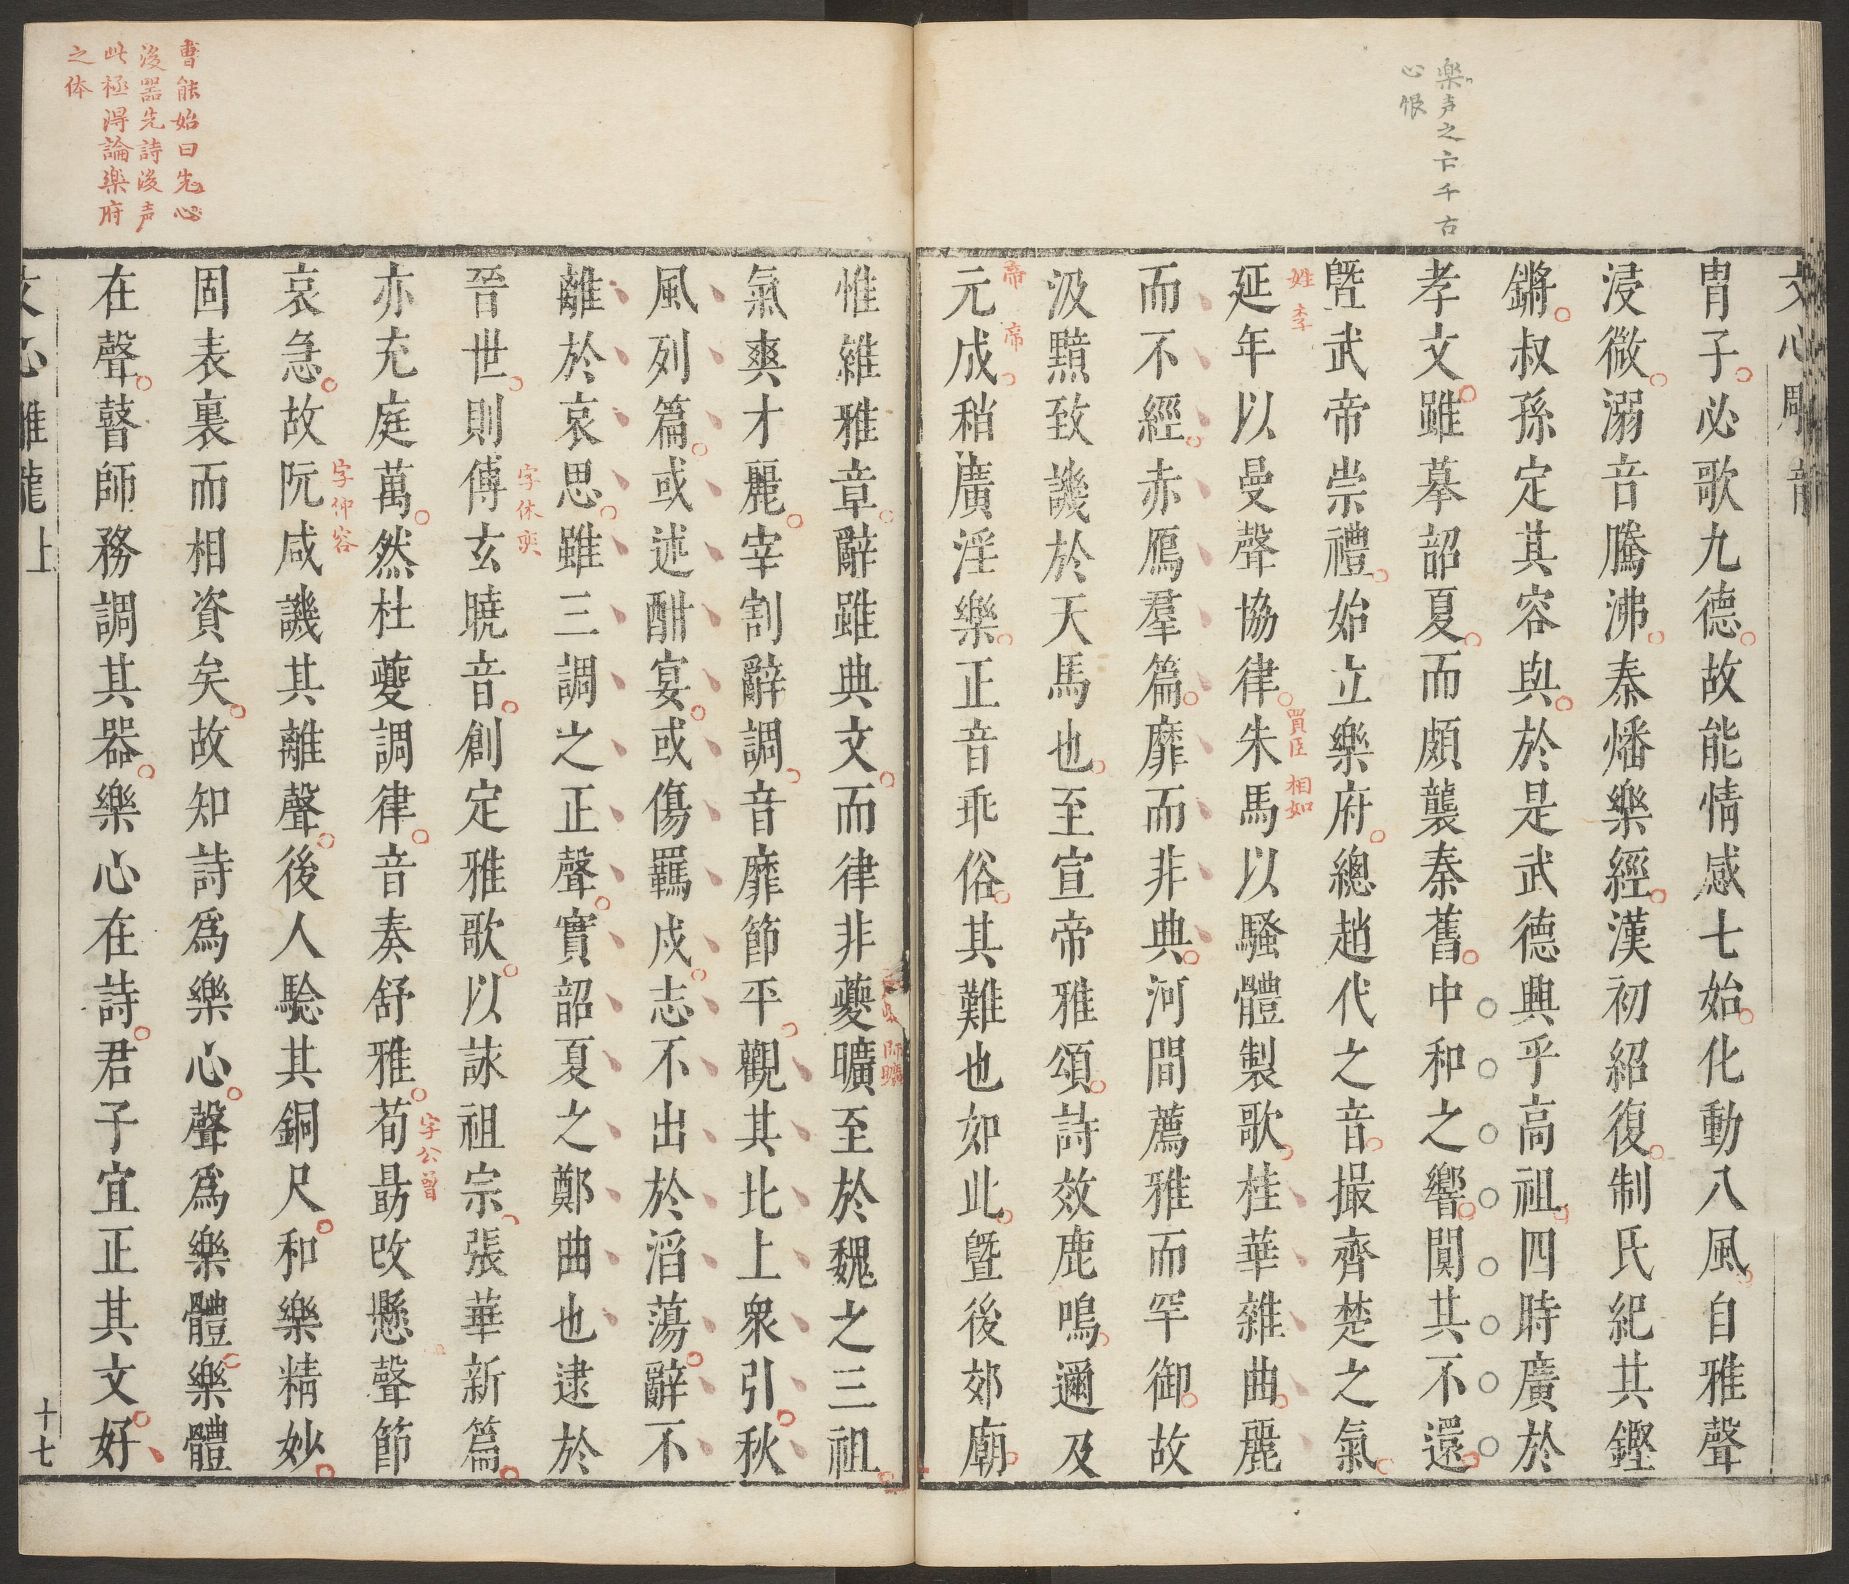 樂声之亡千古
心恨
冑子必歌九德故能情感七始化動八風自雅聲
浸微溺音騰沸秦燔樂經漢初紹復制氏紀其鏗
鏘叔孫定其容與於是武德興乎高祖四時廣於
孝文雖摹韶夏而頗襲秦舊中和之響闃其不還
曁武帝崇禮始立樂府總趙代之音撮齊楚之氣
姓李
延年以曼聲協律朱馬以騷體製歌桂華雜曲麗
買臣 相如
而不經赤鴈羣篇靡而非典河間薦雅而罕御故
汲黯致譏於天馬也至宣帝雅頌詩效鹿鳴邇及
帝 帝
元成稍廣淫樂正音乖俗其難也如此曁後郊廟
曹能始曰先心
後器先詩後声
此極得論樂府
之体
惟雜雅章辭雖典文而律非夔曠至於魏之三祖
師曠
氣爽才麗宰割辭調音靡節平觀其北上衆引秋
風列篇或述酣宴或傷羈戍志不出於滔蕩辭不
離於哀思雖三調之正聲實韶夏之鄭曲也逮於
晉世則傅玄曉音創定雅歌以詠祖宗張華新篇
字休奕
亦充庭萬然杜夔調律音奏舒雅荀勗改懸聲節
字公曾
哀急故阮咸譏其離聲後人驗其銅尺和樂精妙
字仲容
固表裏而相資矣故知詩爲樂心聲爲樂體樂體
在聲瞽師務調其器樂心在詩君子宜正其文好
文心雕龍上
十七